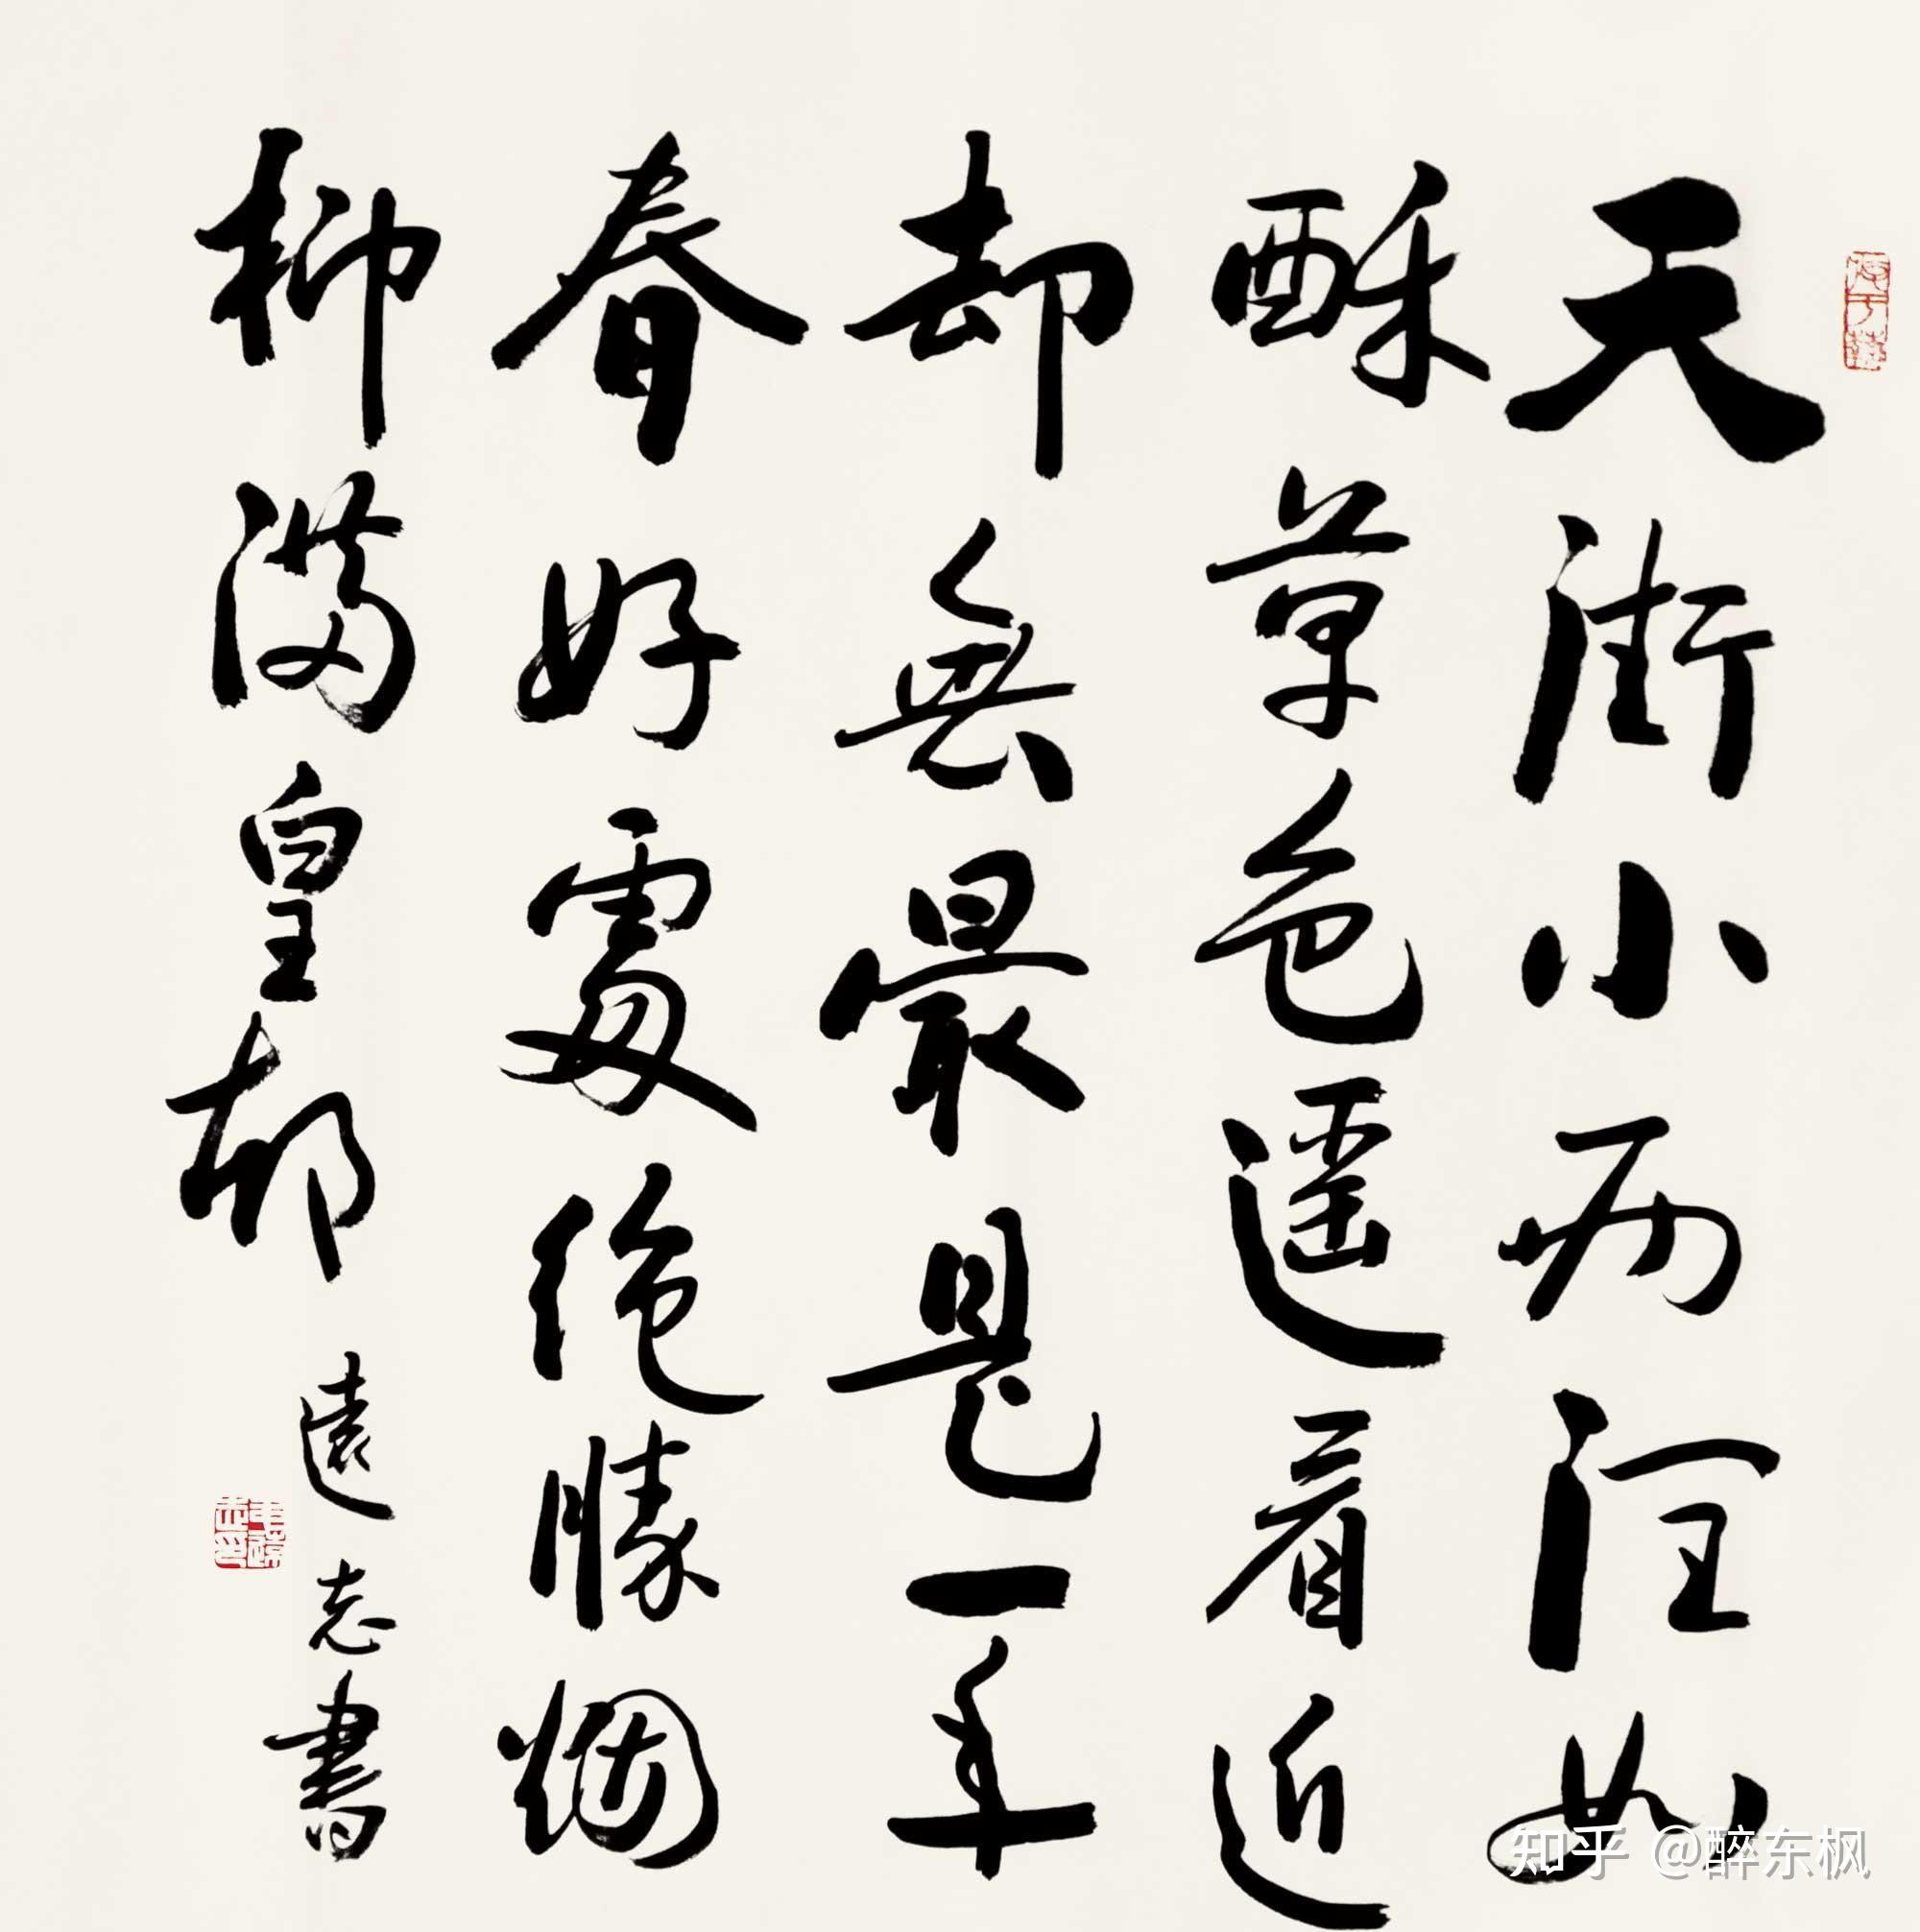 天街小雨潤如
酥草色遥看近
却無最是一年
春好處絶勝烟
柳滿皇都
遠志書
知乎 @醉东枫